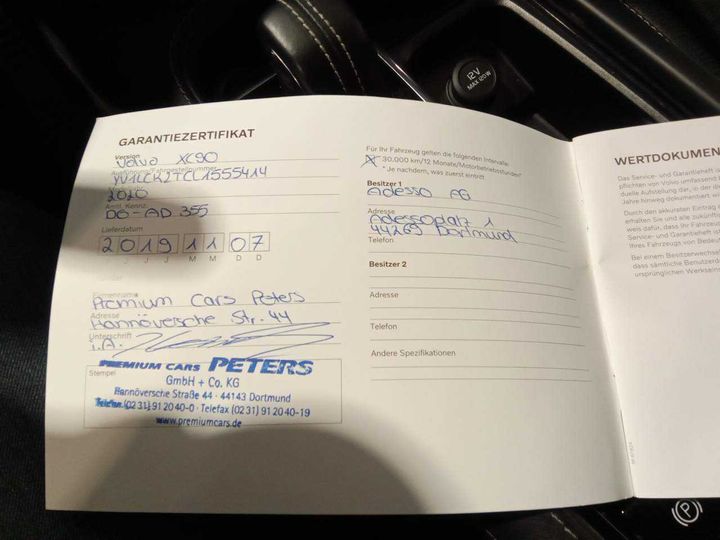 12V
MAX 120W
GARANTIEZERTIFIKAT
Version
Volvo XC90
YV1LCK2TCL1555414
2020
Amtl. Kennz.
DO-AD 355
Lieferdatum
2019 11 07
J J M M D D
Premium Cars Peters
Adresse
Hannöversche Str. 44
Unterschrift
i.A.
Stempel
PREMIUM CARS PETERS
GmbH + Co. KG
Hannöversche Straße 44 · 44143 Dortmund
Telefon (02 31) 91 20 40-0 · Telefax (02 31) 91 20 40-19
www.premiumcars.de
Für Ihr Fahrzeug gelten die folgenden Intervalle:
X 30.000 km/12 Monate/Motorbetriebsstunden*
* Je nachdem, was zuerst eintritt
Besitzer 1
Adesso AG
Adresse
Adessoplatz 1
44269 Dortmund
Telefon
Besitzer 2
Adresse
Telefon
Andere Spezifikationen
WERTDOKUMEN
Das Service- und Garantieheft is
pflichten von Volvo umfassend b
duelle Aufstellung darin, die der
Jahre hinweg dokumentiert wer
Durch den akkuraten Eintrag a
erhalten Sie und alle zukünfti
weis dafür, dass Ihr Fahrzeug
Service- und Garantieheft is
Ihres Fahrzeugs von Bedeu
Bei einem Besitzerwechsel
dass sämtliche Benutzerda
ursprünglichen Werkseins
P